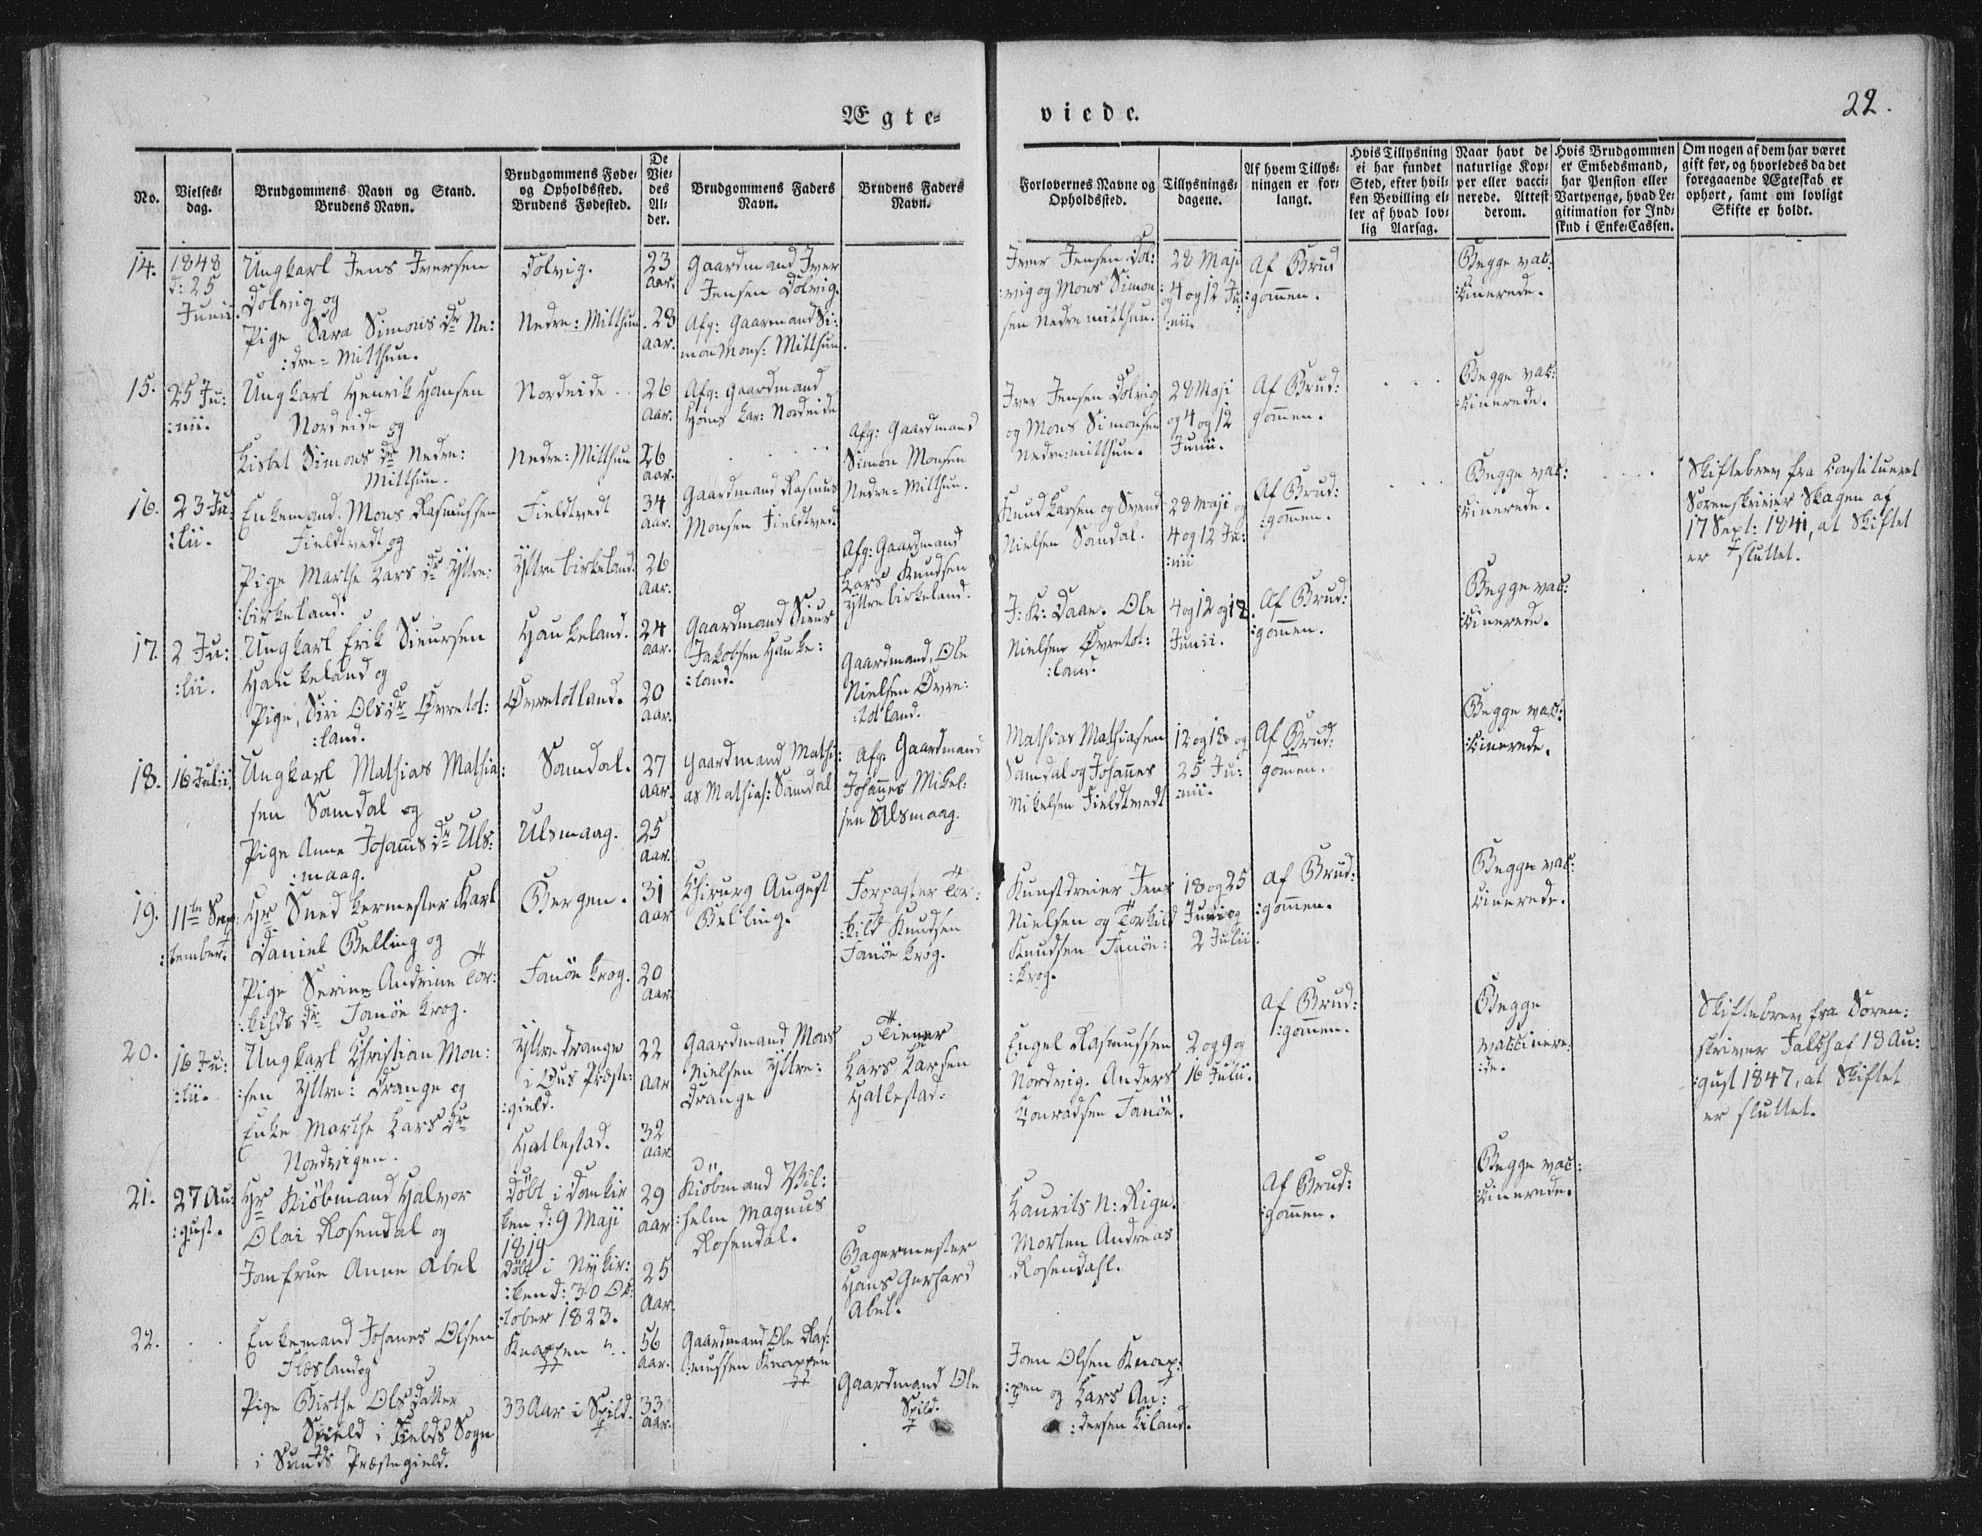 Ægte-
viede.
22.
No.
Vielses-
dag.
Brudgommens Navn og Stand.
Brudens Navn.
Brudgommens Føde-
og Opholdssted.
Brudens Fødested.
De
Vie-
des
Al-
der.
Brudgommens Faders
Navn.
Brudens Faders
Navn.
Forlovernes Navne og
Opholdssted.
Tillysnings-
dagene.
Af hvem Tillys-
ningen er for-
langt.
Hvis Tillysning
ei har fundet
Sted, efter hvil-
ken Bevilling el-
ler af hvad lov-
lig Aarsag.
Naar havt de
naturlige Kop-
per eller vacci-
nerede. Attest
derom.
Hvis Brudgommen
er Embedsmand,
har Pension eller
Vartpenge, hvad Le-
gitimation for Ind-
skud i Enke-Cassen.
Om nogen af dem har været
gift før, og hvorledes da det
foregaaende Ægteskab er
ophørt, samt om lovligt
Skifte er holdt.
14.
1848
d: 25
Junii.
Ungkarl Jens Iversen
Dolvig og
Pige Sara Simons dr Ne:
:dre=Mitthun.
Dolvig.
Nedre: Mitthun
23
Aar.
28
Aar.
Gaardmand Iver
Jensen Dolvig.
Afg: Gaarmand Si:
mon Mons: Mitthun.
Iver Jensen Dol:
:vig og Mons Simon
sen Nedre mitthun.
28 Maji
og 4 og 12 Ju:
:nii.
Af Brud
:gommen.
Begge vac:
:cinerede.
15.
25 Ju:
:nii.
Ungkarl Henrik Hansen
Nordeide og
Lisbet Simons dr Nedre:
Mitthun.
Nordeide
Nedre: Mitthun
26
Aar.
26
Aar.
Afg: Gaardmand
Hans Lar: Nordeide
Afg: Gaardmand
Simon Monsen
Nedre=Mitthun.
Iver Jensen Dolvig
og Mons Simonsen
Nedre:mitthun.
28 Maji
og 4 og 12
Junii.
Af Brud:
gommen.
Begge vac:
:cinerede.
16.
23 Ju:
:lii.
Enkemand. Mons Rasmussen
Fieldtvedt og
Pige Marthe Lars dr Yttre:
:birkeland.
Fieldtvedt
Yttre birkeland.
34
Aar.
26
Aar.
Gaardmand Rasmus
Monsen Fieldtvedt
Afg: Gaardmand
Lars Knudsen
Yttre birkeland.
Knud Larsen og Svend
Nielsen Sandal.
28 Maji og
4 og 12 Ju:
:nii
Af Brud:
:gommen.
Begge vac:
:cinerede.
Skiftebrev fra Constitueret
Sorenskriver Skagen af
17 Sept: 1841, at Skiftet
er sluttet.
17.
2 Ju:
:lii.
Ungkarl Erik Siursen
Haukeland og
Pige, Siri Ols dr Øvretot:
:land.
Haukeland.
Øvretotland.
24
Aar.
20
Aar.
Gaardmand Siur
Jakobsen Hauke:
:land.
Gaardmand, Ole
Nielsen Øvre:
:totland.
J: K: Daae. Ole
Nielsen Øvretot:
:land.
4 og 12 og 18
Junii.
Af Brud:
:gommen.
Begge vac:
:cinerede.
18.
16 Julii
Ungkarl Mathias Mathia:
sen Samdal og
Pige Anne Johanns dr Uls:
:maag.
Samdal.
Ulsmaag.
27
Aar.
25
Aar.
Gaardmand Mathi:
as Mathias: Samdal
Afg: Gaardmand
Johannes Mikel:
sen Ulsmaag.
Mathias Mathiasen
Samdal og Johannes
Mikelsen Fieldtvedt
12 og 18 og
25 Ju:
:nii.
Af Brud:
gomen.
Begge vac:
:cinerede.
19.
11te Sep
:tember.
Hr Snedkermester Karl
Daniel Belling og
Pige Serine Andrine Tor:
:kilds dr Fanøe krog.
Bergen.
Fanøe krog.
31
Aar
20
Aar.
Chirurg August
Belling.
Forpagter Tor:
:kild Knudsen
Fanøe krog.
Kunstdreier Jens
Nielsen og Torkild
Knudsen Fanöe:
:krog.
18 og 25
Juni og
2 Julii.
Af Brud:
:gommen.
Begge vac:
:cinerede.
20.
16 Ju:
:lii.
Ungkarl Christian Mon:
:sen Yttre: Drange og
Enke Marthe Lars dr
Nordvigen.
Yttre Drange
i Ous Præste:
:gield.
Hallestad.
22
Aar
32
Aar.
Gaardmand Mons
Nielsen Yttre:
Drange
Tiener
Lars Larsen
Hallestad.
Engel Rasmussen
Nordvig. Anders
Conradsen Fanöe.
2 og 9 og
16 Julii.
Af Brud:
:gommen.
Begge
vaccinere:
:de.
Skiftebrev fra Soren:
skriver Falck af 18 Au:
:gust 1847, at Skiftet
er sluttet.
21.
27 Au:
:gust.
Hr Kiöbmand Halvor
Olai Rosendal og
Jomfrue Anne Abel
Döbt i Domkir
ken d: 9 Maji
1819
Döbt i Nykir:
:ken d: 30 Ok:
:tober 1823.
29
Aar
25
Aar.
Kiöbmand Vil:
:helm Magnus
Rosendal.
Bagermester
Hans Gerhard
Abel.
Laurits N: Rign.
Morten Andreas
Rosendahl.
Af Brud:
:gommen.
Begge vac:
:cinerede.
22.
Enkemand Johanes Olsen
Flesland og
Pige Birthe Ols Datter
Spield i Fields Sogn
i Sunds Præstegield.
Knappen
33 Aar i Spild.
56
Aar.
33
Aar.
Gaardmand Ole Ras:
:mussen Knappen
Gaardmand Ole
Spild.
Joen Olsen Knap:
:pen og Lars An:
:dersen Liland.